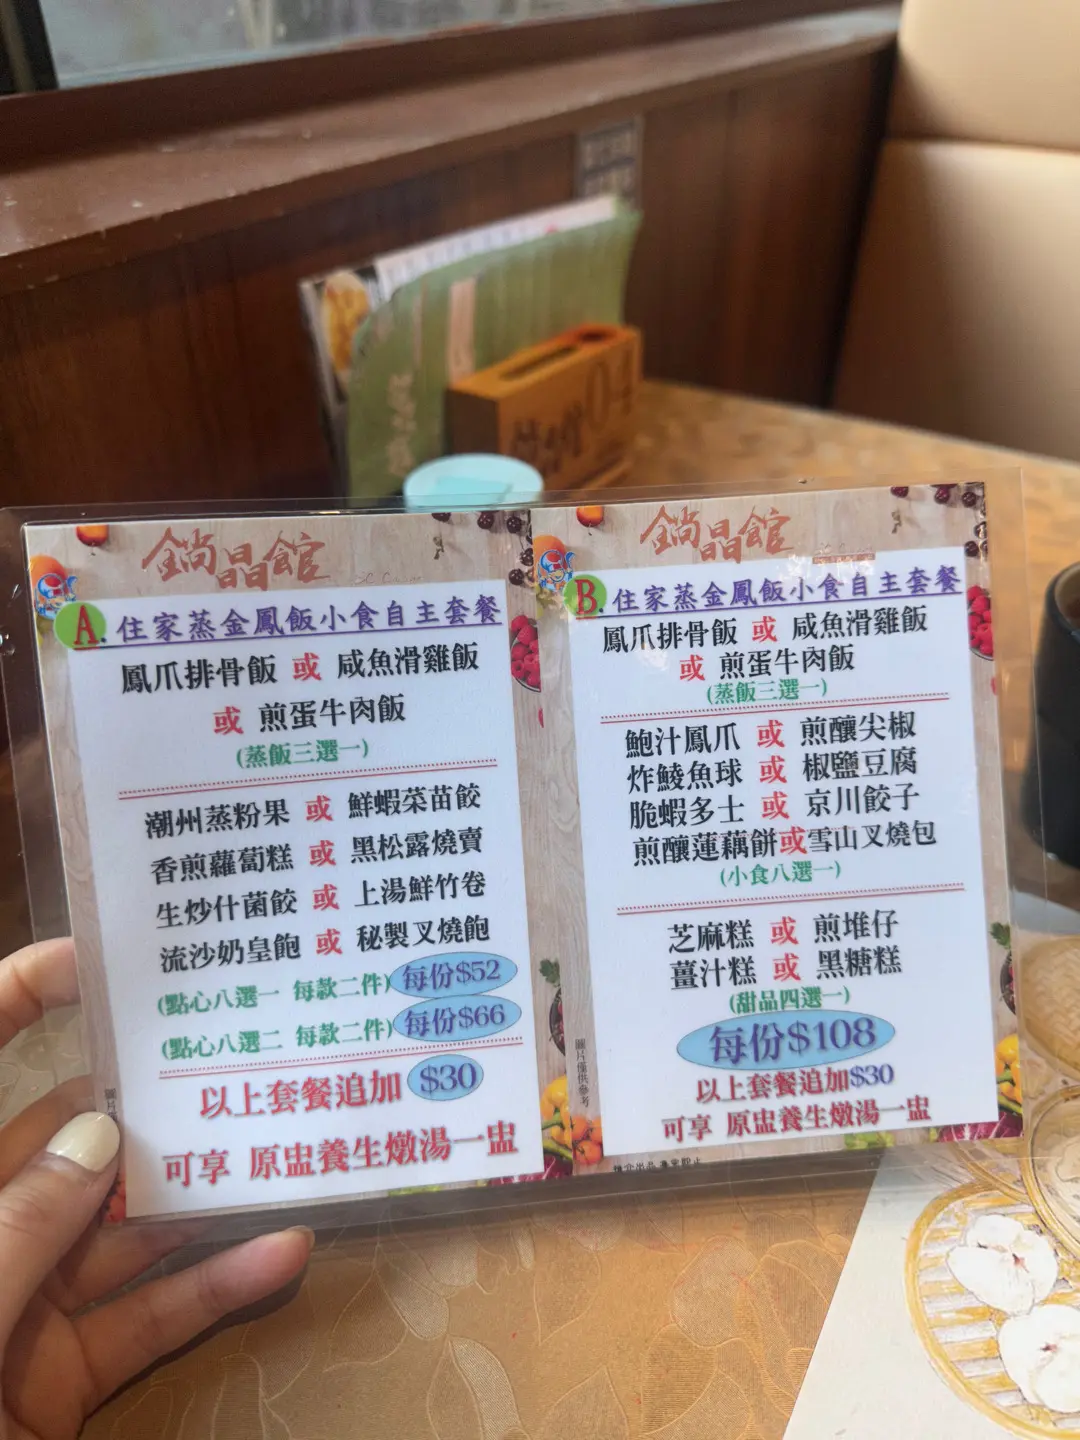 鐗晶館
A. 住家蒸金鳳飯小食自主套餐
鳳爪排骨飯 或 咸魚滑雞飯
或 煎蛋牛肉飯
(蒸飯三選一)
潮州蒸粉果 或 鮮蝦菜苗餃
香煎蘿蔔糕 或 黑松露燒賣
生炒什菌餃 或 上湯鮮竹卷
流沙奶皇飽 或 秘製叉燒飽
(點心八選一 每款二件) 每份$52
(點心八選二 每款二件) 每份$66
以上套餐追加 $30
可享 原盅養生燉湯一盅
鐗晶館
B. 住家蒸金鳳飯小食自主套餐
鳳爪排骨飯 或 咸魚滑雞飯
或 煎蛋牛肉飯
(蒸飯三選一)
鮑汁鳳爪 或 煎釀尖椒
炸鯪魚球 或 椒鹽豆腐
脆蝦多士 或 京川餃子
煎釀蓮藕餅或雪山叉燒包
(小食八選一)
芝麻糕 或 煎堆仔
薑汁糕 或 黑糖糕
(甜品四選一)
每份$108
以上套餐追加$30
可享 原盅養生燉湯一盅
圖片僅供參考
04